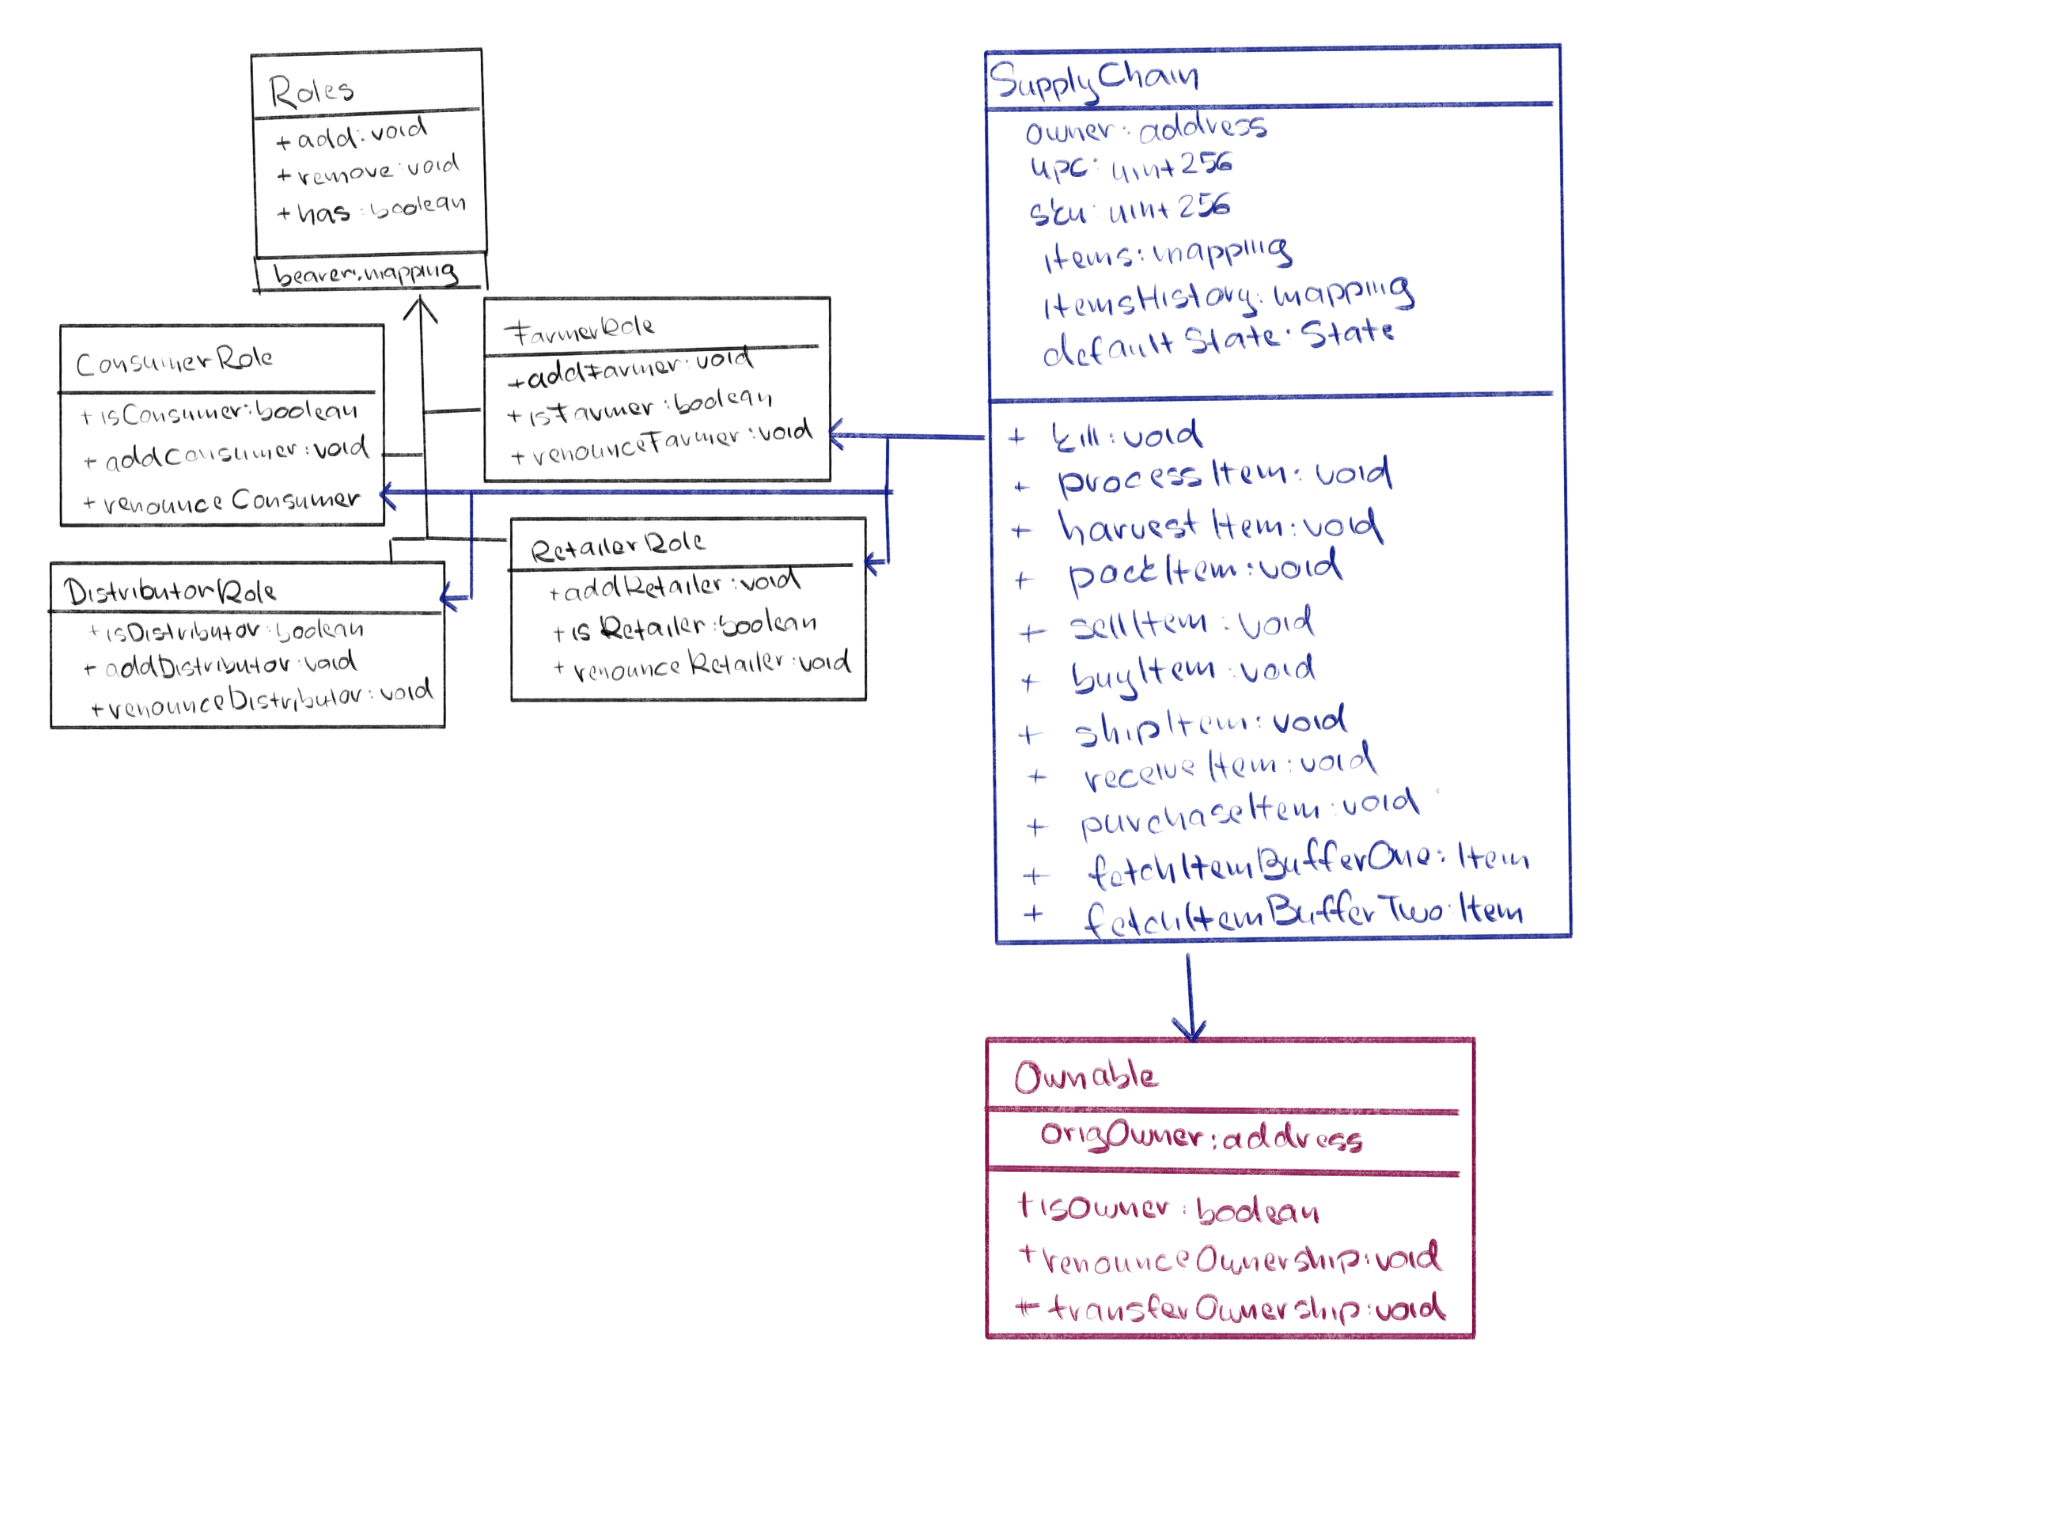 Roles
+ add: void
+ remove: void
+ has: boolean
bearer: mapping
ConsumerRole
+ isConsumer: boolean
+ addConsumer: void
+ renounceConsumer
FarmerRole
+ addFarmer: void
+ isFarmer: boolean
+ renounceFarmer: void
DistributorRole
+ isDistributor: boolean
+ addDistributor: void
+ renounceDistributor: void
RetailerRole
+ addRetailer: void
+ isRetailer: boolean
+ renounceRetailer: void
SupplyChain
owner: address
upc: uint256
sku: uint256
items: mapping
itemsHistory: mapping
defaultState: State
+ kill: void
+ processItem: void
+ harvestItem: void
+ packItem: void
+ sellItem: void
+ buyItem: void
+ shipItem: void
+ receiveItem: void
+ purchaseItem: void
+ fetchItemBufferOne: Item
+ fetchItemBufferTwo: Item
Ownable
origOwner: address
+ isOwner: boolean
+ renounceOwnership: void
+ transferOwnership: void